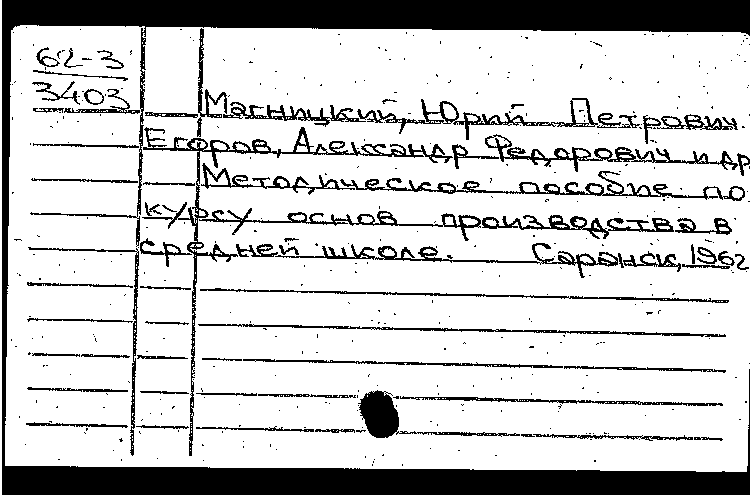 62-3
3403
Магницкий, Юрий Петрович
Егоров, Александр Федорович и др
Методическое пособие по
курсу основ производства в
средней школе. Саранск, 1962